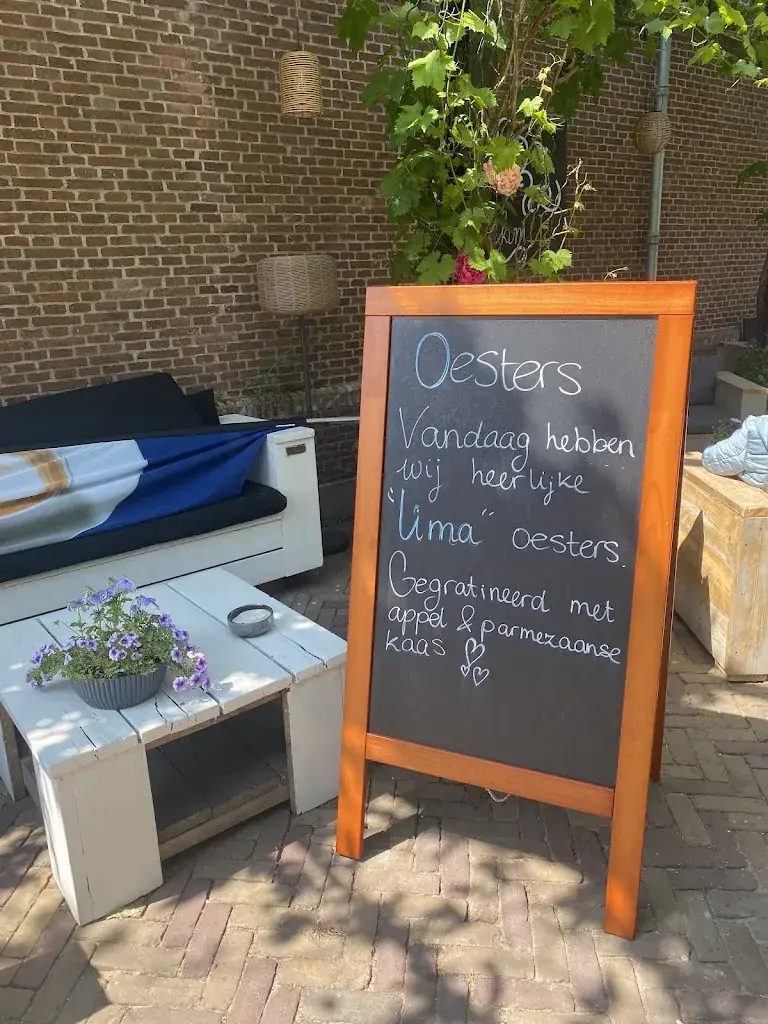 Oesters
Vandaag hebben
wij heerlijke
"Uma" oesters.
Gegratineerd met
appel & parmezaanse
kaas